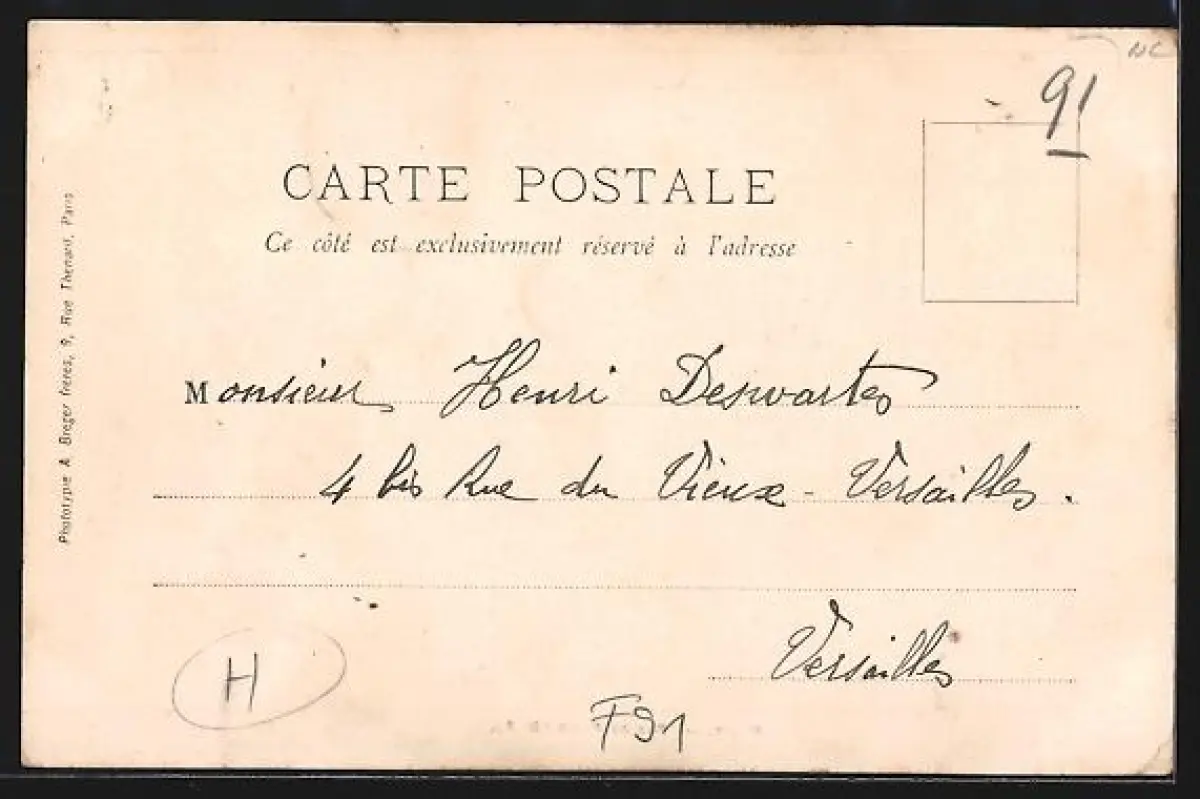 NC
91
CARTE POSTALE
Ce côté est exclusivement réservé à l'adresse
Monsieur Henri Deswartes
4 bis Rue du Vieux - Versailles.
Versailles
H
F91
Phototypie A. Breger frères, 9, Rue Thenard, Paris